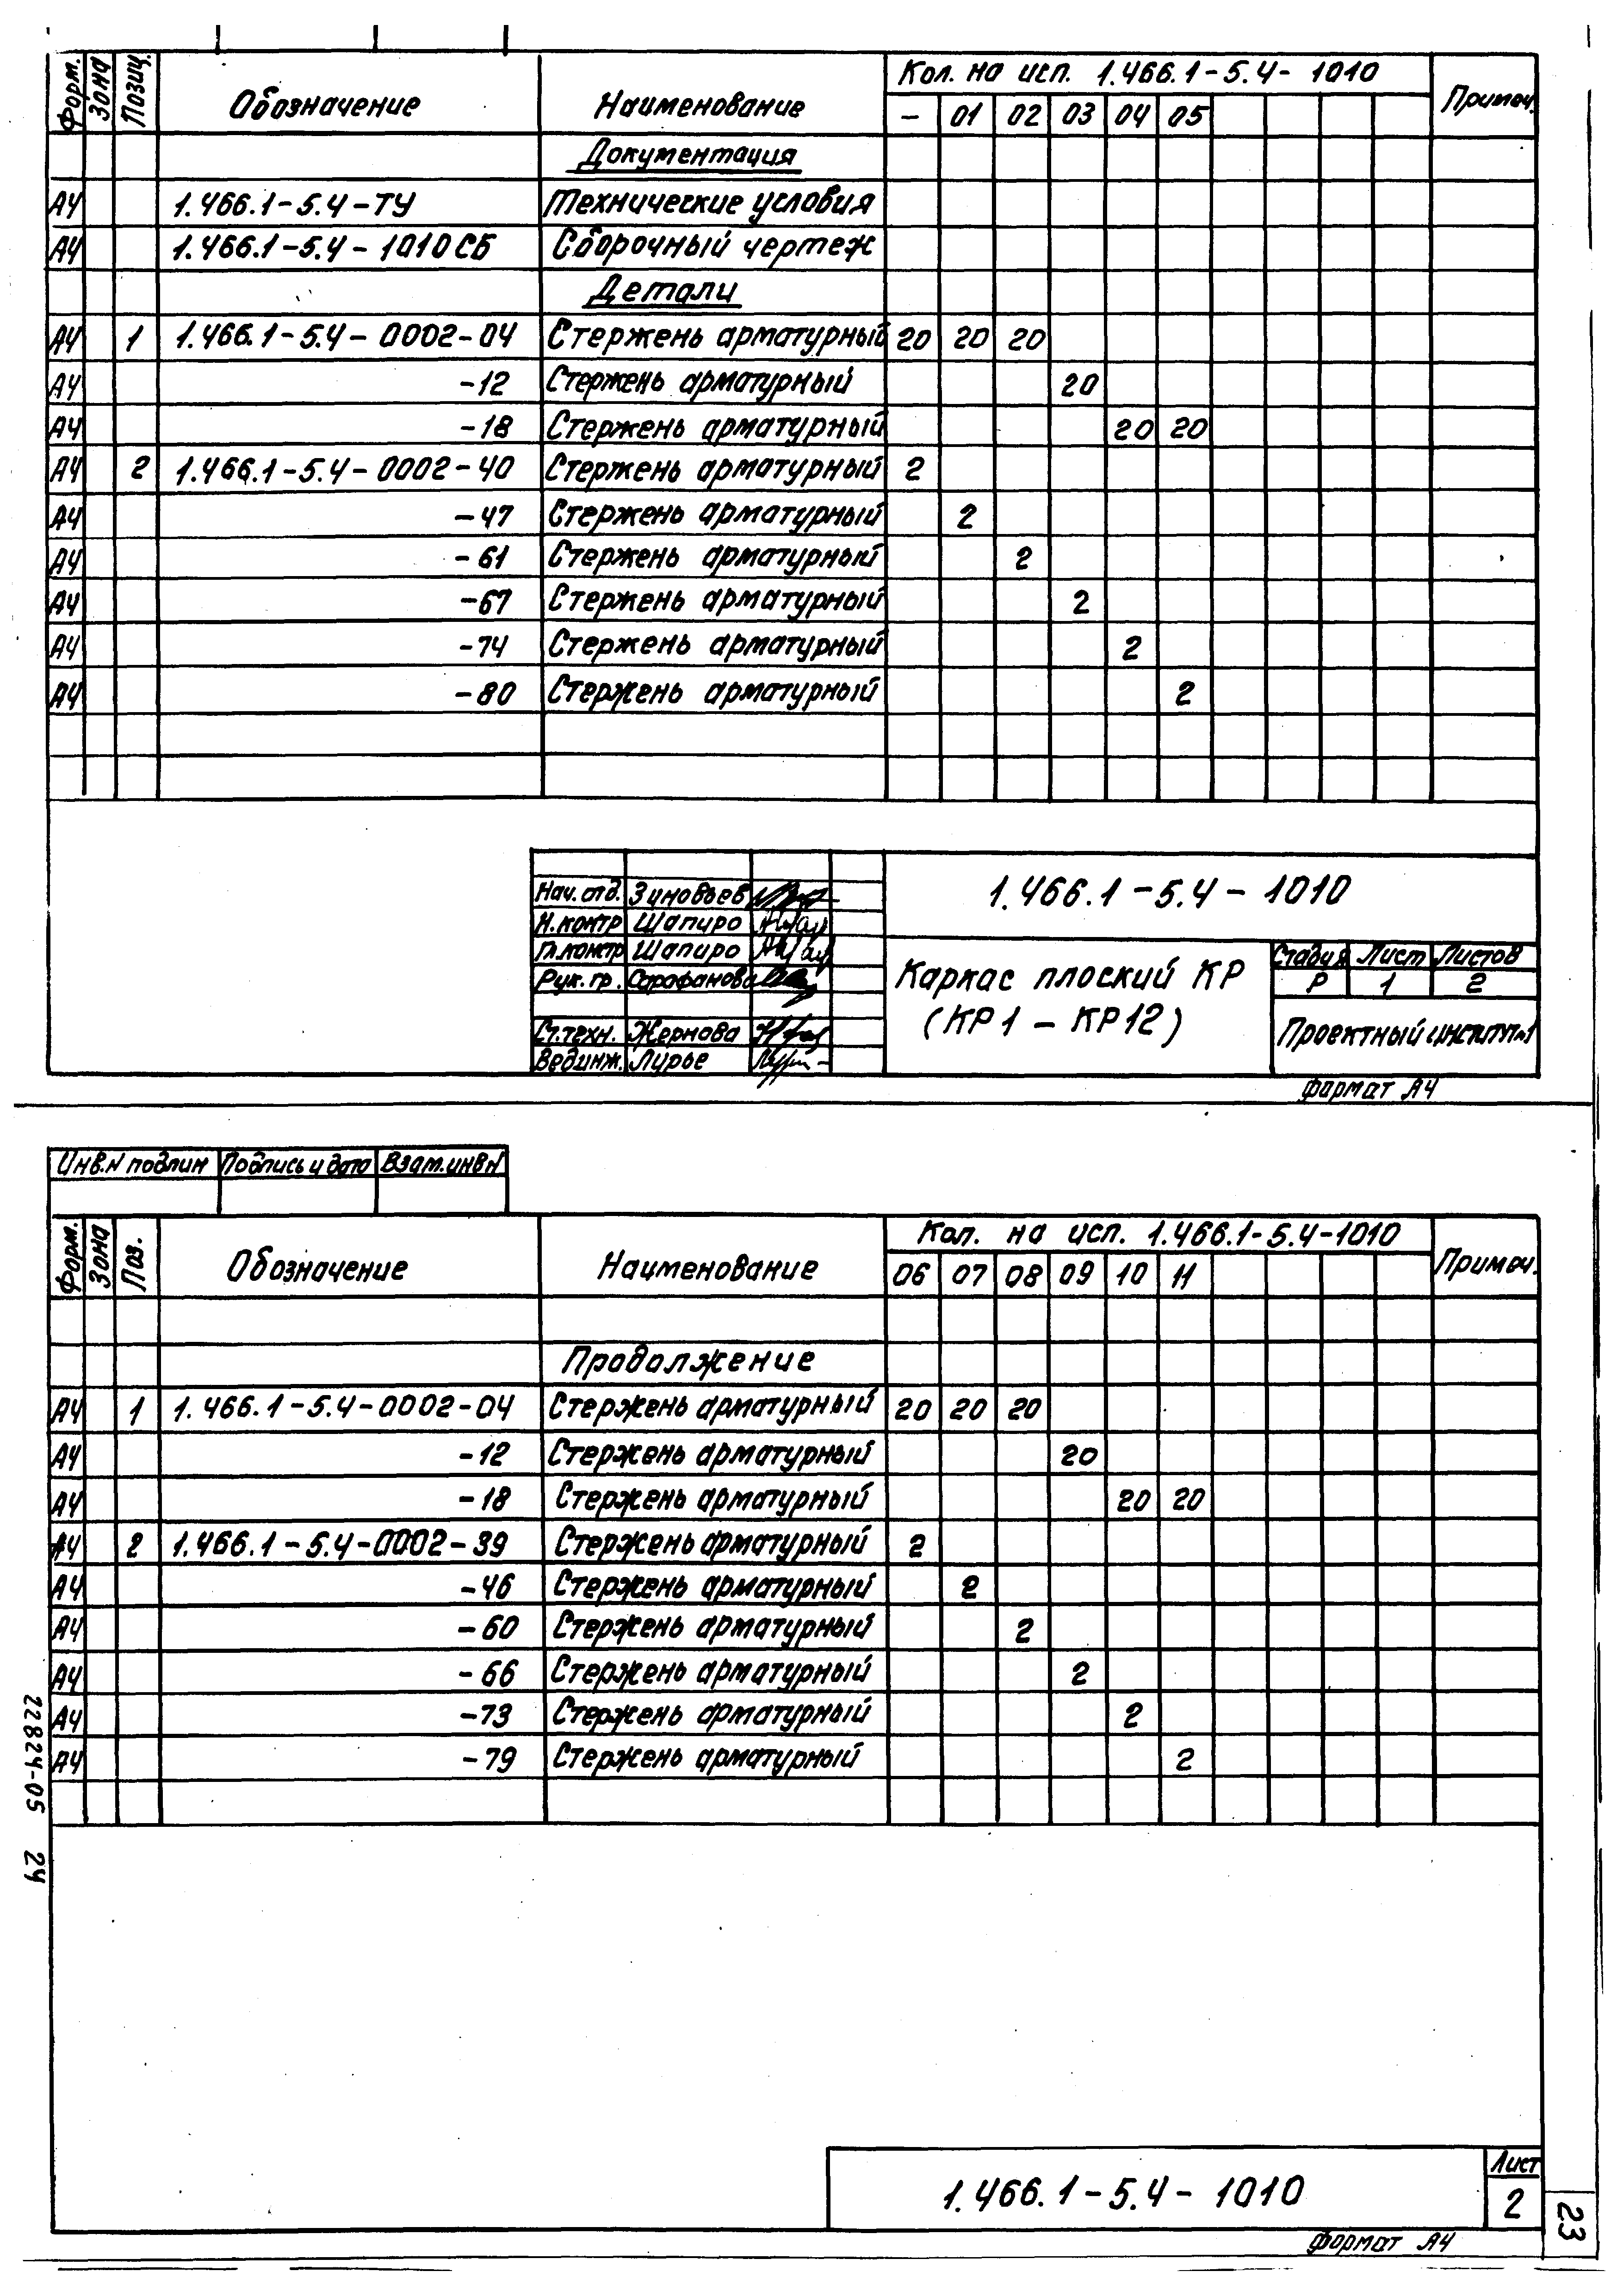 Форм. Зона Позиц. Обозначение Наименование Кол. на исп. 1.466.1-5.4-1010 Примеч.
- 01 02 03 04 05
Документация
А4 1.466.1-5.4-ТУ Технические условия
А4 1.466.1-5.4-1010СБ Сборочный чертеж
Детали
А4 1 1.466.1-5.4-0002-04 Стержень арматурный 20 20 20
А4 -12 Стержень арматурный 20
А4 -18 Стержень арматурный 20 20
А4 2 1.466.1-5.4-0002-40 Стержень арматурный 2
А4 -47 Стержень арматурный 2
А4 -61 Стержень арматурный 2
А4 -67 Стержень арматурный 2
А4 -74 Стержень арматурный 2
А4 -80 Стержень арматурный 2
Нач. отд. Зиновьев
Н.контр Шапиро
Гл.констр Шапиро
Рук. гр. Сарафанова
Ст.техн. Жернова
Вед.инж. Лурье
1.466.1-5.4-1010
Каркас плоский КР
(КР1 - КР12)
Стадия Лист Листов
Р 1 2
Проектный институт №1
Формат А4
Инв.№ подлин Подпись и дата Взам.инв№
Форм. Зона Поз. Обозначение Наименование Кол. на исп. 1.466.1-5.4-1010 Примеч.
06 07 08 09 10 11
Продолжение
А4 1 1.466.1-5.4-0002-04 Стержень арматурный 20 20 20
А4 -12 Стержень арматурный 20
А4 -18 Стержень арматурный 20 20
А4 2 1.466.1-5.4-0002-39 Стержень арматурный 2
А4 -46 Стержень арматурный 2
А4 -60 Стержень арматурный 2
А4 -66 Стержень арматурный 2
А4 -73 Стержень арматурный 2
А4 -79 Стержень арматурный 2
22824-05 24
1.466.1-5.4-1010
Лист
2
Формат А4
23